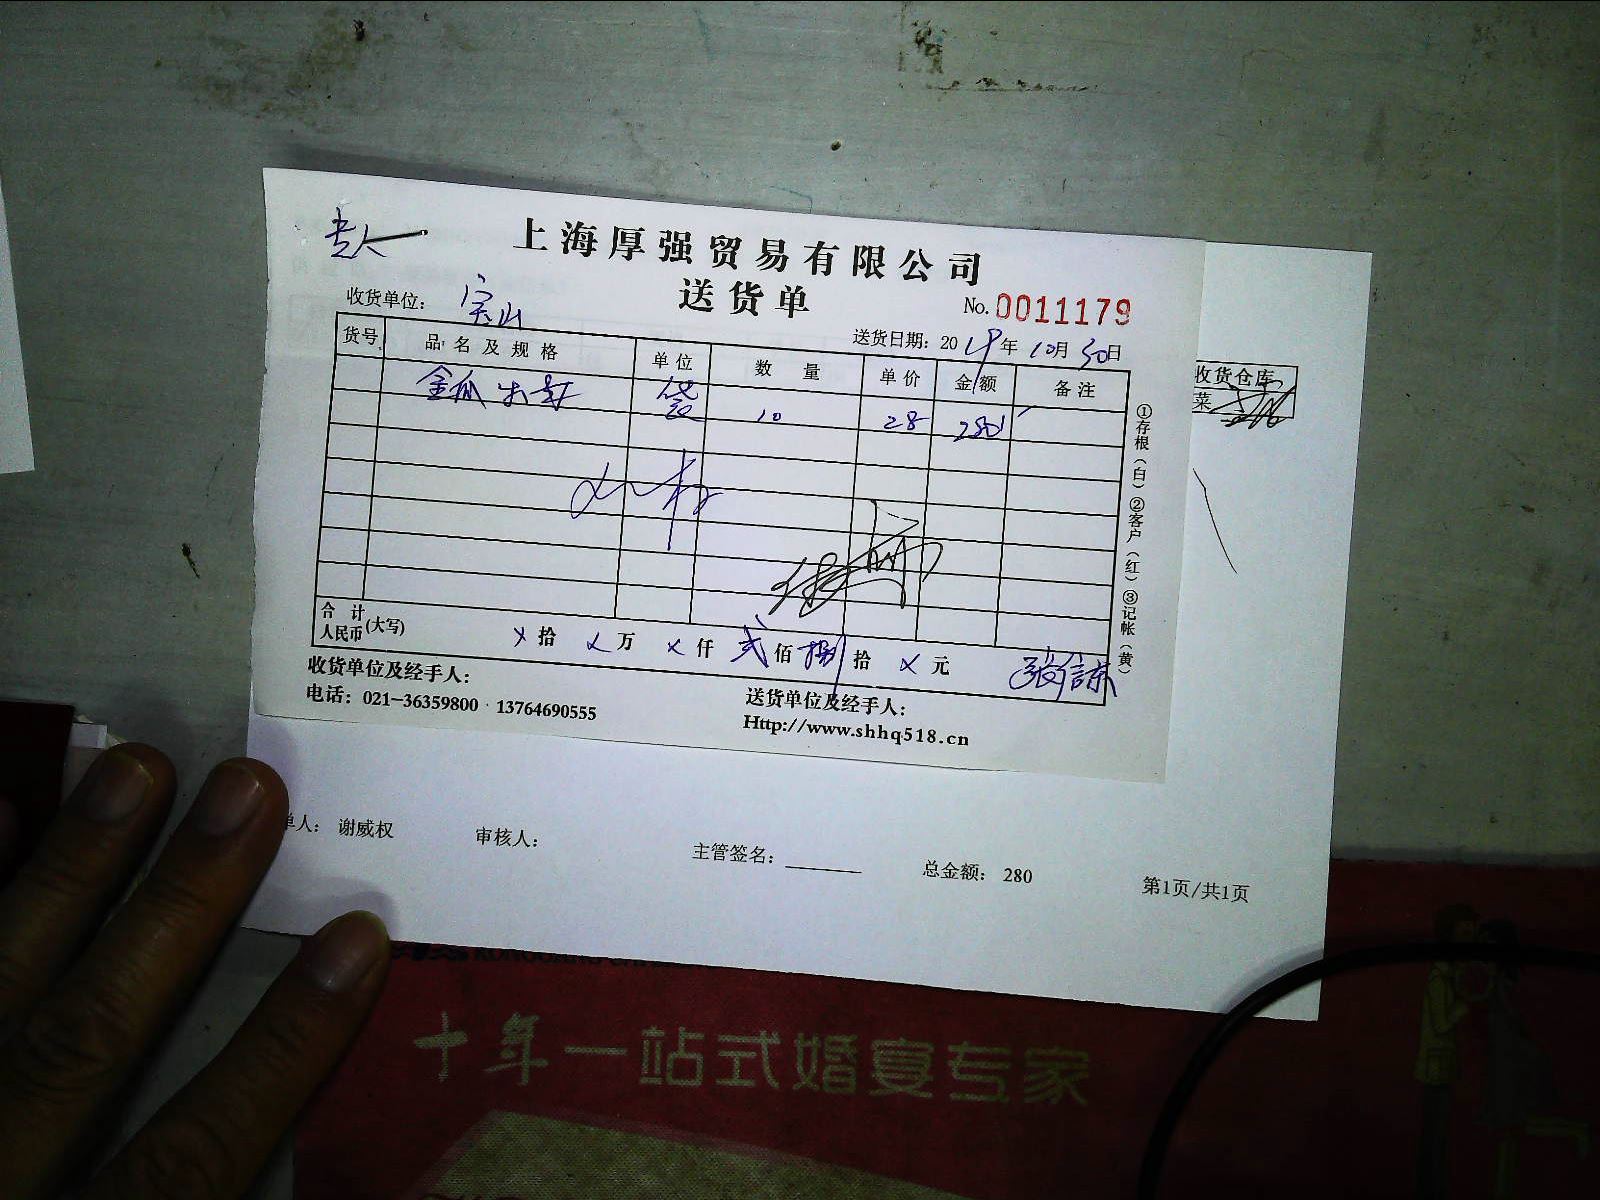 上海厚强贸易有限公司
送货单
No. 0011179
收货单位: 宝山
送货日期: 2019年10月30日
货号 品名及规格 单位 数量 单价 金额 备注
金瓜 袋 10 28 280
①存根(白)②客户(红)③记帐(黄)
合计 人民币(大写) ×拾×万×仟贰佰捌拾×元
收货单位及经手人:
送货单位及经手人:
电话: 021-36359800 13764690555
Http://www.shhq518.cn
收货仓库
菜
单人: 谢威权 审核人: 主管签名: 总金额: 280 第1页/共1页
十年一站式婚宴专家